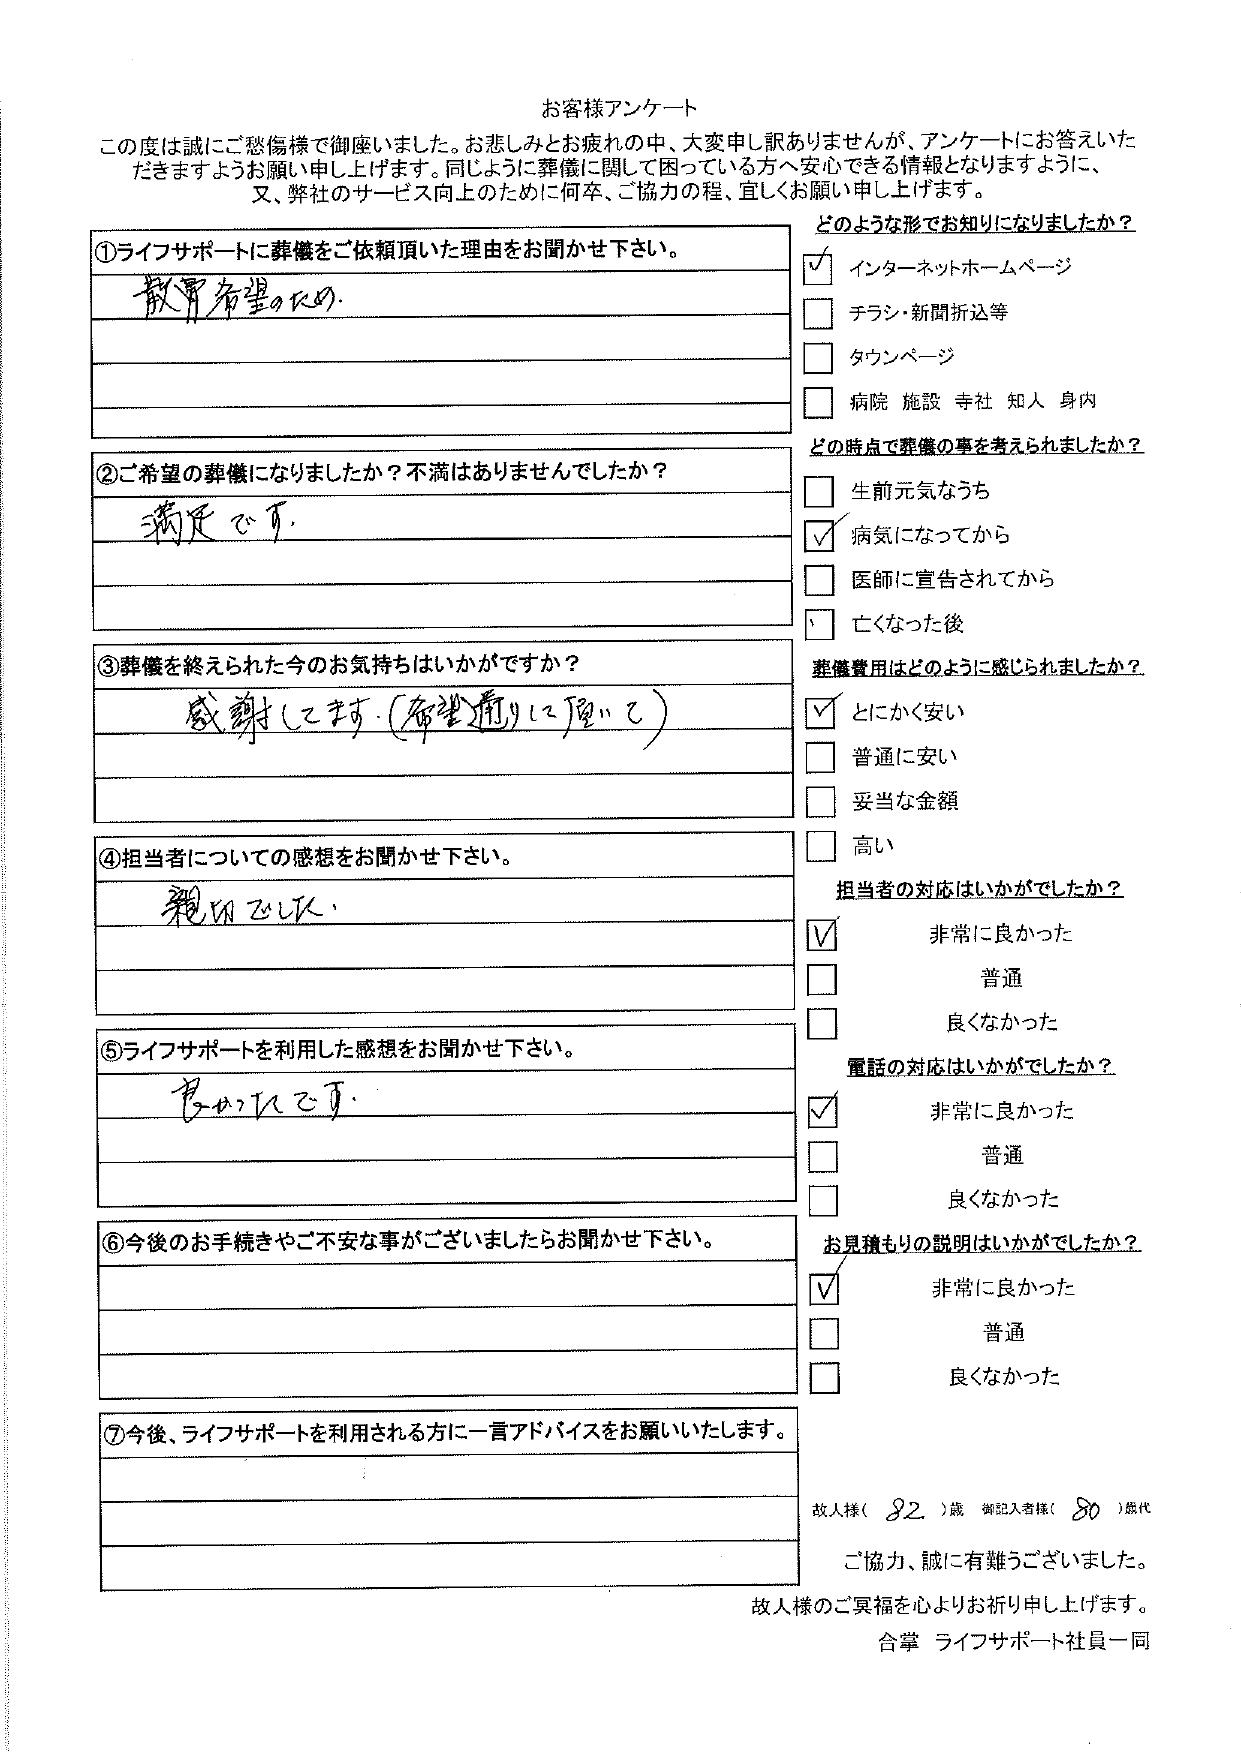 お客様アンケート
この度は誠にご愁傷様で御座いました。お悲しみとお疲れの中、大変申し訳ありませんが、アンケートにお答えいた
だきますようお願い申し上げます。同じように葬儀に関して困っている方へ安心できる情報となりますように、
又、弊社のサービス向上のために何卒、ご協力の程、宜しくお願い申し上げます。
①ライフサポートに葬儀をご依頼頂いた理由をお聞かせ下さい。
散骨希望のため.
②ご希望の葬儀になりましたか？不満はありませんでしたか？
満足です.
③葬儀を終えられた今のお気持ちはいかがですか？
感謝してます.(希望通りして頂いて)
④担当者についての感想をお聞かせ下さい。
親切でした.
⑤ライフサポートを利用した感想をお聞かせ下さい。
良かったです.
⑥今後のお手続きやご不安な事がございましたらお聞かせ下さい。
⑦今後、ライフサポートを利用される方に一言アドバイスをお願いいたします。
どのような形でお知りになりましたか？
インターネットホームページ
チラシ・新聞折込等
タウンページ
病院 施設 寺社 知人 身内
どの時点で葬儀の事を考えられましたか？
生前元気なうち
病気になってから
医師に宣告されてから
亡くなった後
葬儀費用はどのように感じられましたか？
とにかく安い
普通に安い
妥当な金額
高い
担当者の対応はいかがでしたか？
非常に良かった
普通
良くなかった
電話の対応はいかがでしたか？
非常に良かった
普通
良くなかった
お見積もりの説明はいかがでしたか？
非常に良かった
普通
良くなかった
故人様( 82 )歳 御記入者様( 80 )歳代
ご協力、誠に有難うございました。
故人様のご冥福を心よりお祈り申し上げます。
合掌 ライフサポート社員一同